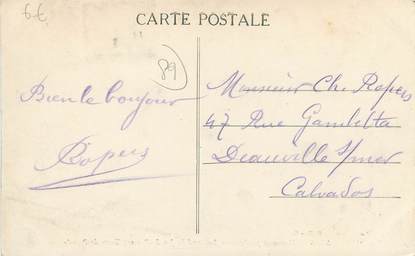 6€
CARTE POSTALE
89
Bien le bonjour
Ropers
Monsieur Ch. Ropers
47 Rue Gambetta
Deauville s/mer
Calvados